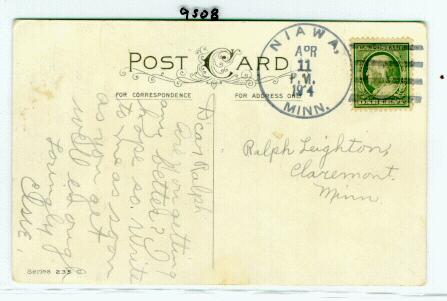 9308
POST CARD
FOR CORRESPONDENCE
FOR ADDRESS ONLY
NIAWA,
APR
11
P.M.
MINN.
Dear Ralph
are you getting
any better? I
hope so. Write
to me as soon
as you get
well enough
Lovingly
Elsie.
Ralph Leighton,
Claremont.
Minn.
Series 235 C